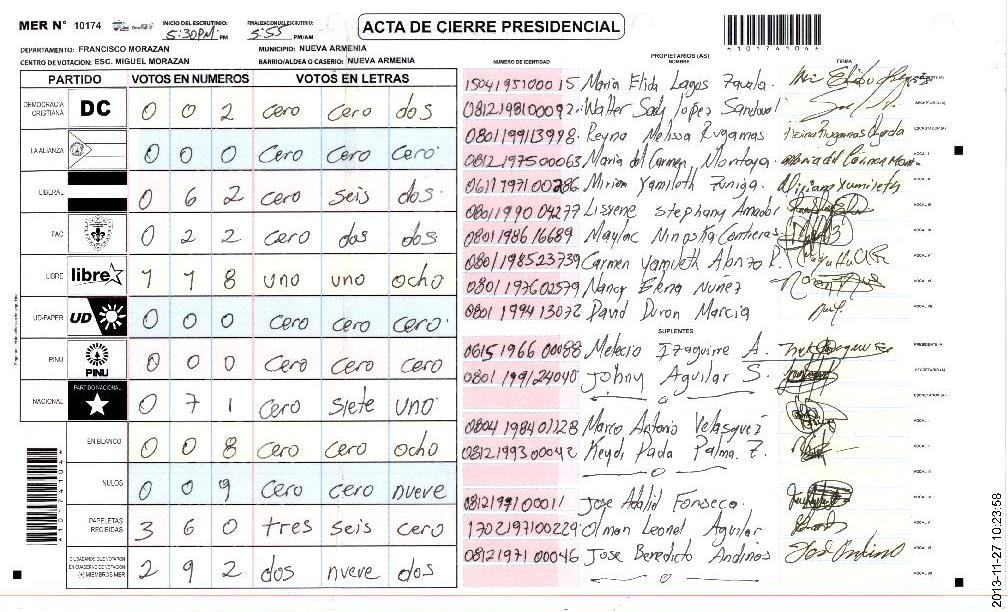 MER N° 10174 INICIO DEL ESCRUTINIO: 5:30PM. PM FINALIZACION DEL ESCRUTINIO: 5:55 PM/AM ACTA DE CIERRE PRESIDENCIAL
*10174104*
DEPARTAMENTO: FRANCISCO MORAZAN MUNICIPIO: NUEVA ARMENIA
CENTRO DE VOTACION: ESC. MIGUEL MORAZAN BARRIO/ALDEA O CASERIO: NUEVA ARMENIA
PARTIDO VOTOS EN NUMEROS VOTOS EN LETRAS
DEMOCRACIA CRISTIANA DC 0 0 2 cero cero dos
LA ALIANZA 0 0 0 Cero Cero Cero
LIBERAL 0 6 2 cero seis dos
PAC 0 2 2 cero dos dos
LIBRE libre 1 1 8 uno uno ocho
UD-FAPER UD 0 0 0 cero cero cero
PINU PINU 0 0 0 Cero Cero Cero
NACIONAL PARTIDO NACIONAL 0 7 1 Cero Siete uno
EN BLANCO 0 0 8 Cero cero ocho
NULOS 0 0 9 Cero cero nueve
PAPELETAS RECIBIDAS 3 6 0 tres seis cero
CIUDADANOS QUE VOTARON EN CUADERNO DE VOTACION (+) MIEMBROS MER 2 9 2 dos nueve dos
PROPIETARIOS (AS)
NUMERO DE IDENTIDAD NOMBRE FIRMA
Maria Elida Lagos Zavala PRESIDENTE (A)
Walter Sady Lopez Sandoval SECRETARIO (A)
0801199113998 Reyna Melissa Rugamas ESCRUTADOR (A)
0812197500063 Maria del Carmen Montoya Maria del Carmen VOCAL I
0611197100286 Miriam Yamileth Zuniga VOCAL II
0801199004277 Stephany Amador VOCAL III
0801198616689 VOCAL IV
0801198523739 Carmen Yamileth Alonzo R. VOCAL V
0801197602579 Nancy Elena Nuñez VOCAL VI
0801199413072 David Duron Marcia VOCAL VII
SUPLENTES
0615196600088 Melecio Izaguirre A. PRESIDENTE (A)
0801199124040 Johny Aguilar S. SECRETARIO (A)
ESCRUTADOR (A)
0804198401128 Marco Antonio Velasquez VOCAL I
0812199300042 Palma Z. VOCAL II
VOCAL III
Jose Adalid Fonseca VOCAL IV
1702197100229 Olman Leonel Aguilar VOCAL V
0812197100046 Jose Benedicto Andinos VOCAL VI
VOCAL VII
*10174104*
2013-11-27 10:23:58